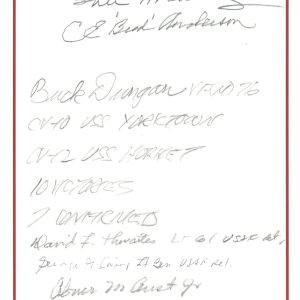 C E "Bud" Anderson
Buck Dungan VF AND 76
CV-10 USS YORKTOWN
CV-12 USS HORNET
10 VICTORIES
7 CONFIRMED
David F. Thwaites Lt Col USAF Ret.
George G Loving Lt Gen USAF Ret.
Abner M Aust Jr